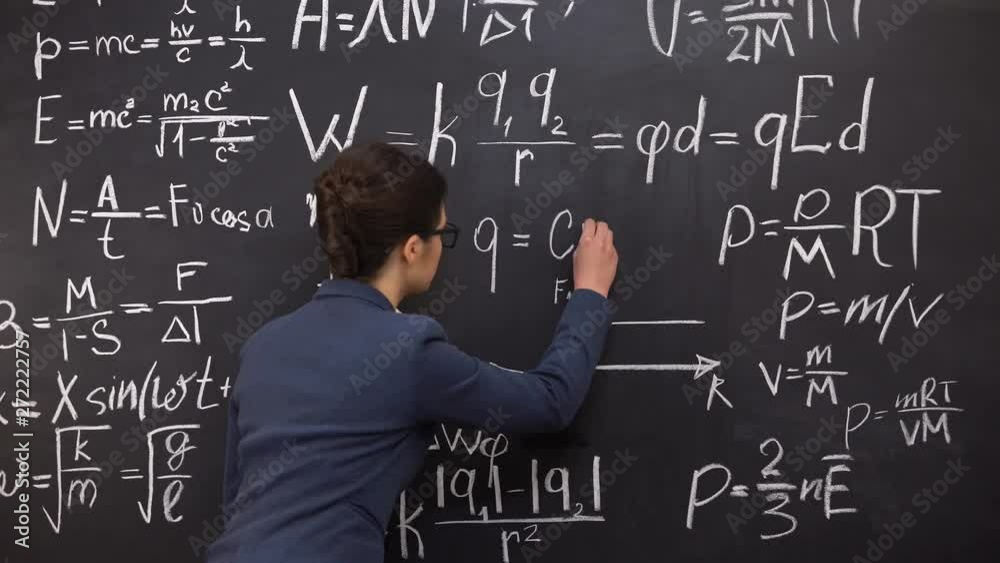 p = mc = hν/c = h/λ
H = λN
Δ1
2M
E = mc² = m₂c²/√1 - v²/c²
W = k q₁q₂/r = φd = qEd
N = A/t = Fv cosα
q = C
p = ρ/M RT
M/1-S = F/Δl
p = m/v
K
ν = m/M
p = mRT/VM
X sin(ωt +
√k/m = √g/l
Wφ
k |q₁|-|q₂|/r²
p = 2/3 nE̅
Adobe Stock
272222757